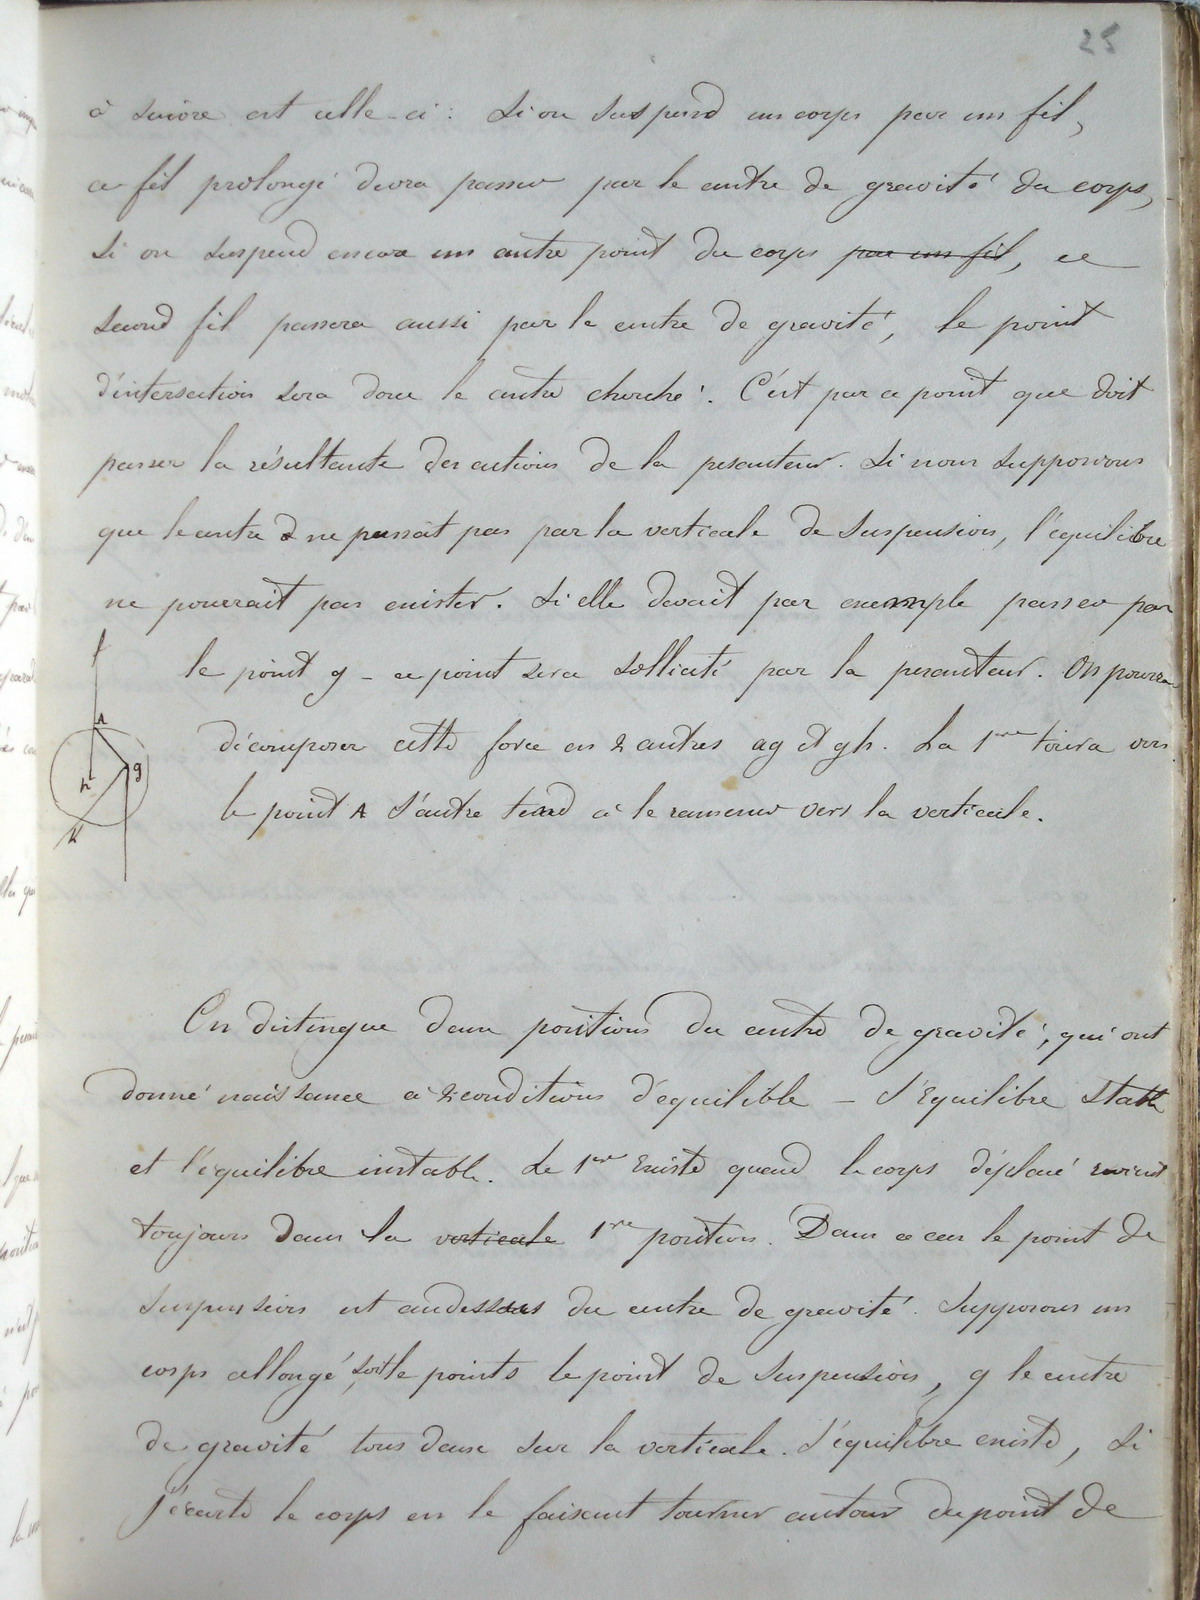 25
à suivre est celle-ci : Si on suspend un corps par un fil,
ce fil prolongé devra passer par le centre de gravité du corps,
Si on suspend encore un autre point du corps par un fil, ce
second fil passera aussi par le centre de gravité, le point
d'intersection sera donc le centre cherché. C'est par ce point que doit
passer la résultante des actions de la pesanteur. Si nous supposions
que le centre ne passât pas par la verticale de suspension, l'équilibre
ne pourrait pas exister. Si elle devait par exemple passer par
le point g - ce point sera sollicité par la pesanteur. On pourra
décomposer cette force en 2 autres ag et gh. La 1re tirera vers
le point A l'autre tend à le ramener vers la verticale.
A
h
g
K
On distingue deux positions du centre de gravité, qui ont
donné naissance à 2 conditions d'équilible – l'Equilibre stable
et l'équilibre instable. Le 1er Existe quand le corps déplacé revient
toujours dans la verticale 1re position. Dans ce cas le point de
suspension est audessus du centre de gravité. Supposons un
corps allongé, soit le point s le point de suspension, g le centre
de gravité tous deux sur la verticale. L'équilibre existe, si
j'écarte le corps en le faisant tourner autour du point de